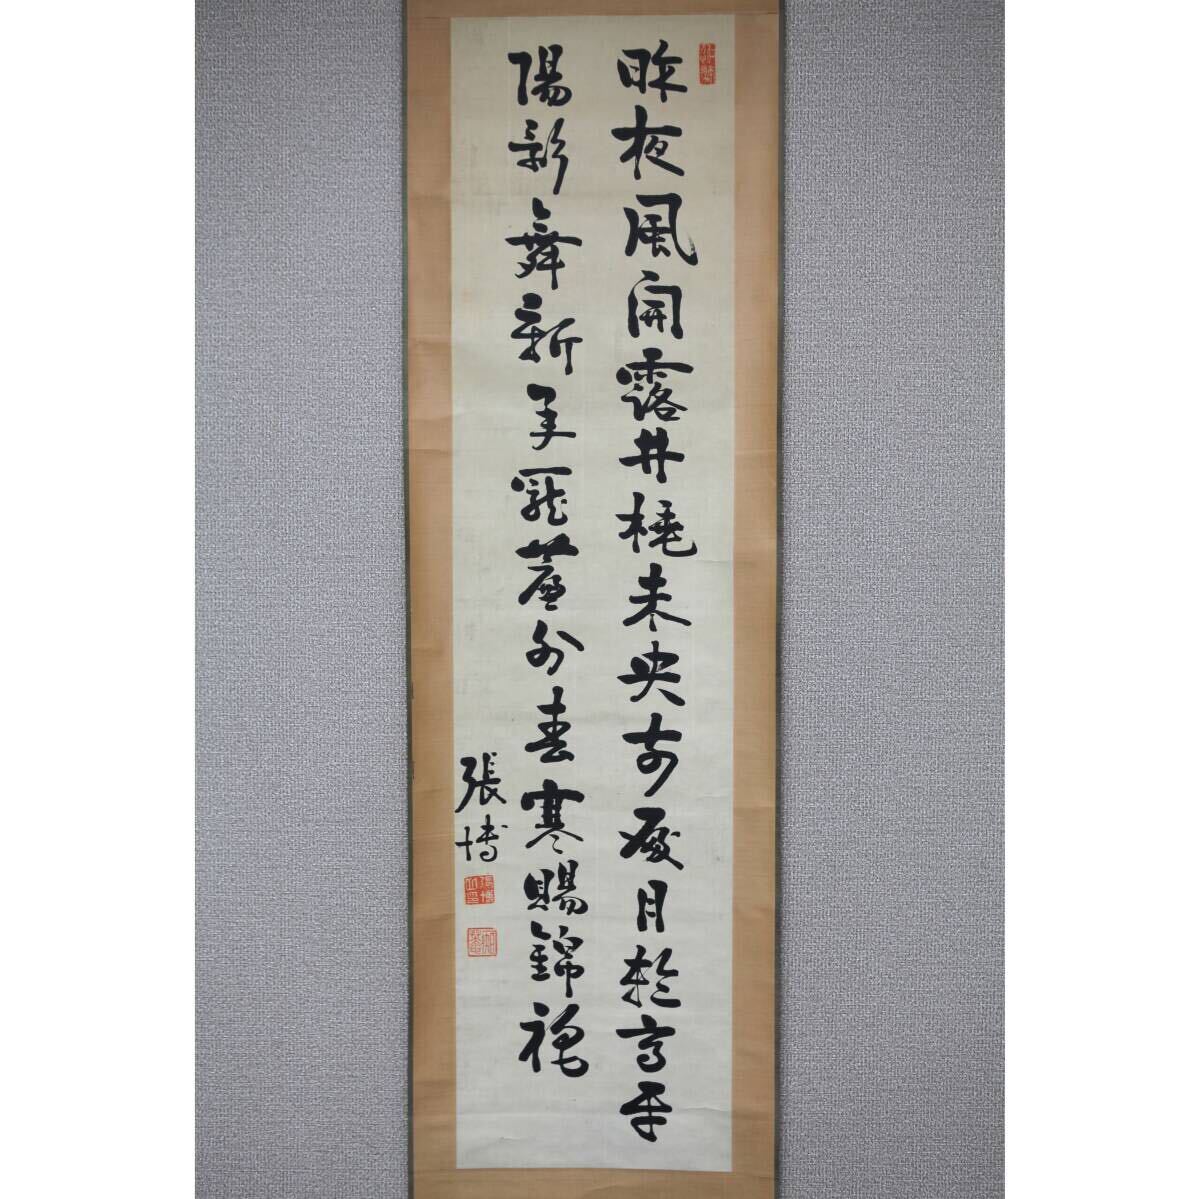 昨夜風開露井桃未央前殿月輪高平
陽歌舞新承寵簾外春寒賜錦袍
張博